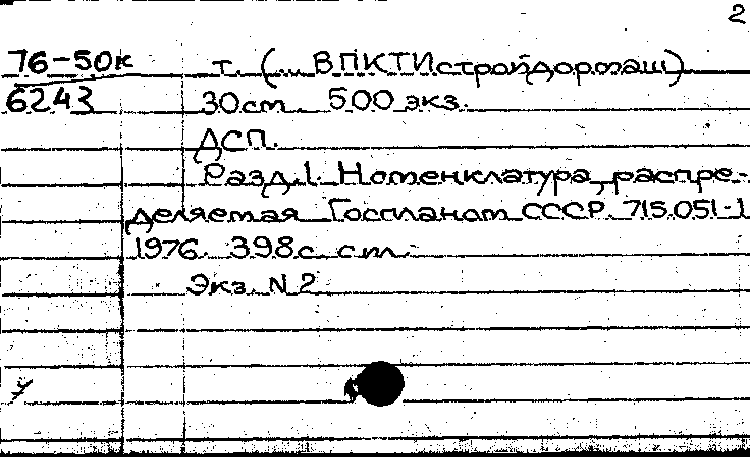 2
76-50к т. (... ВПКТИстройдормаш)
6243 30 см. 500 экз.
ДСП.
Разд. 1. Номенклатура, распре-
деляемая Госпланом СССР. 715.051-1
1976. 398 с. с м.
Экз. N 2
у